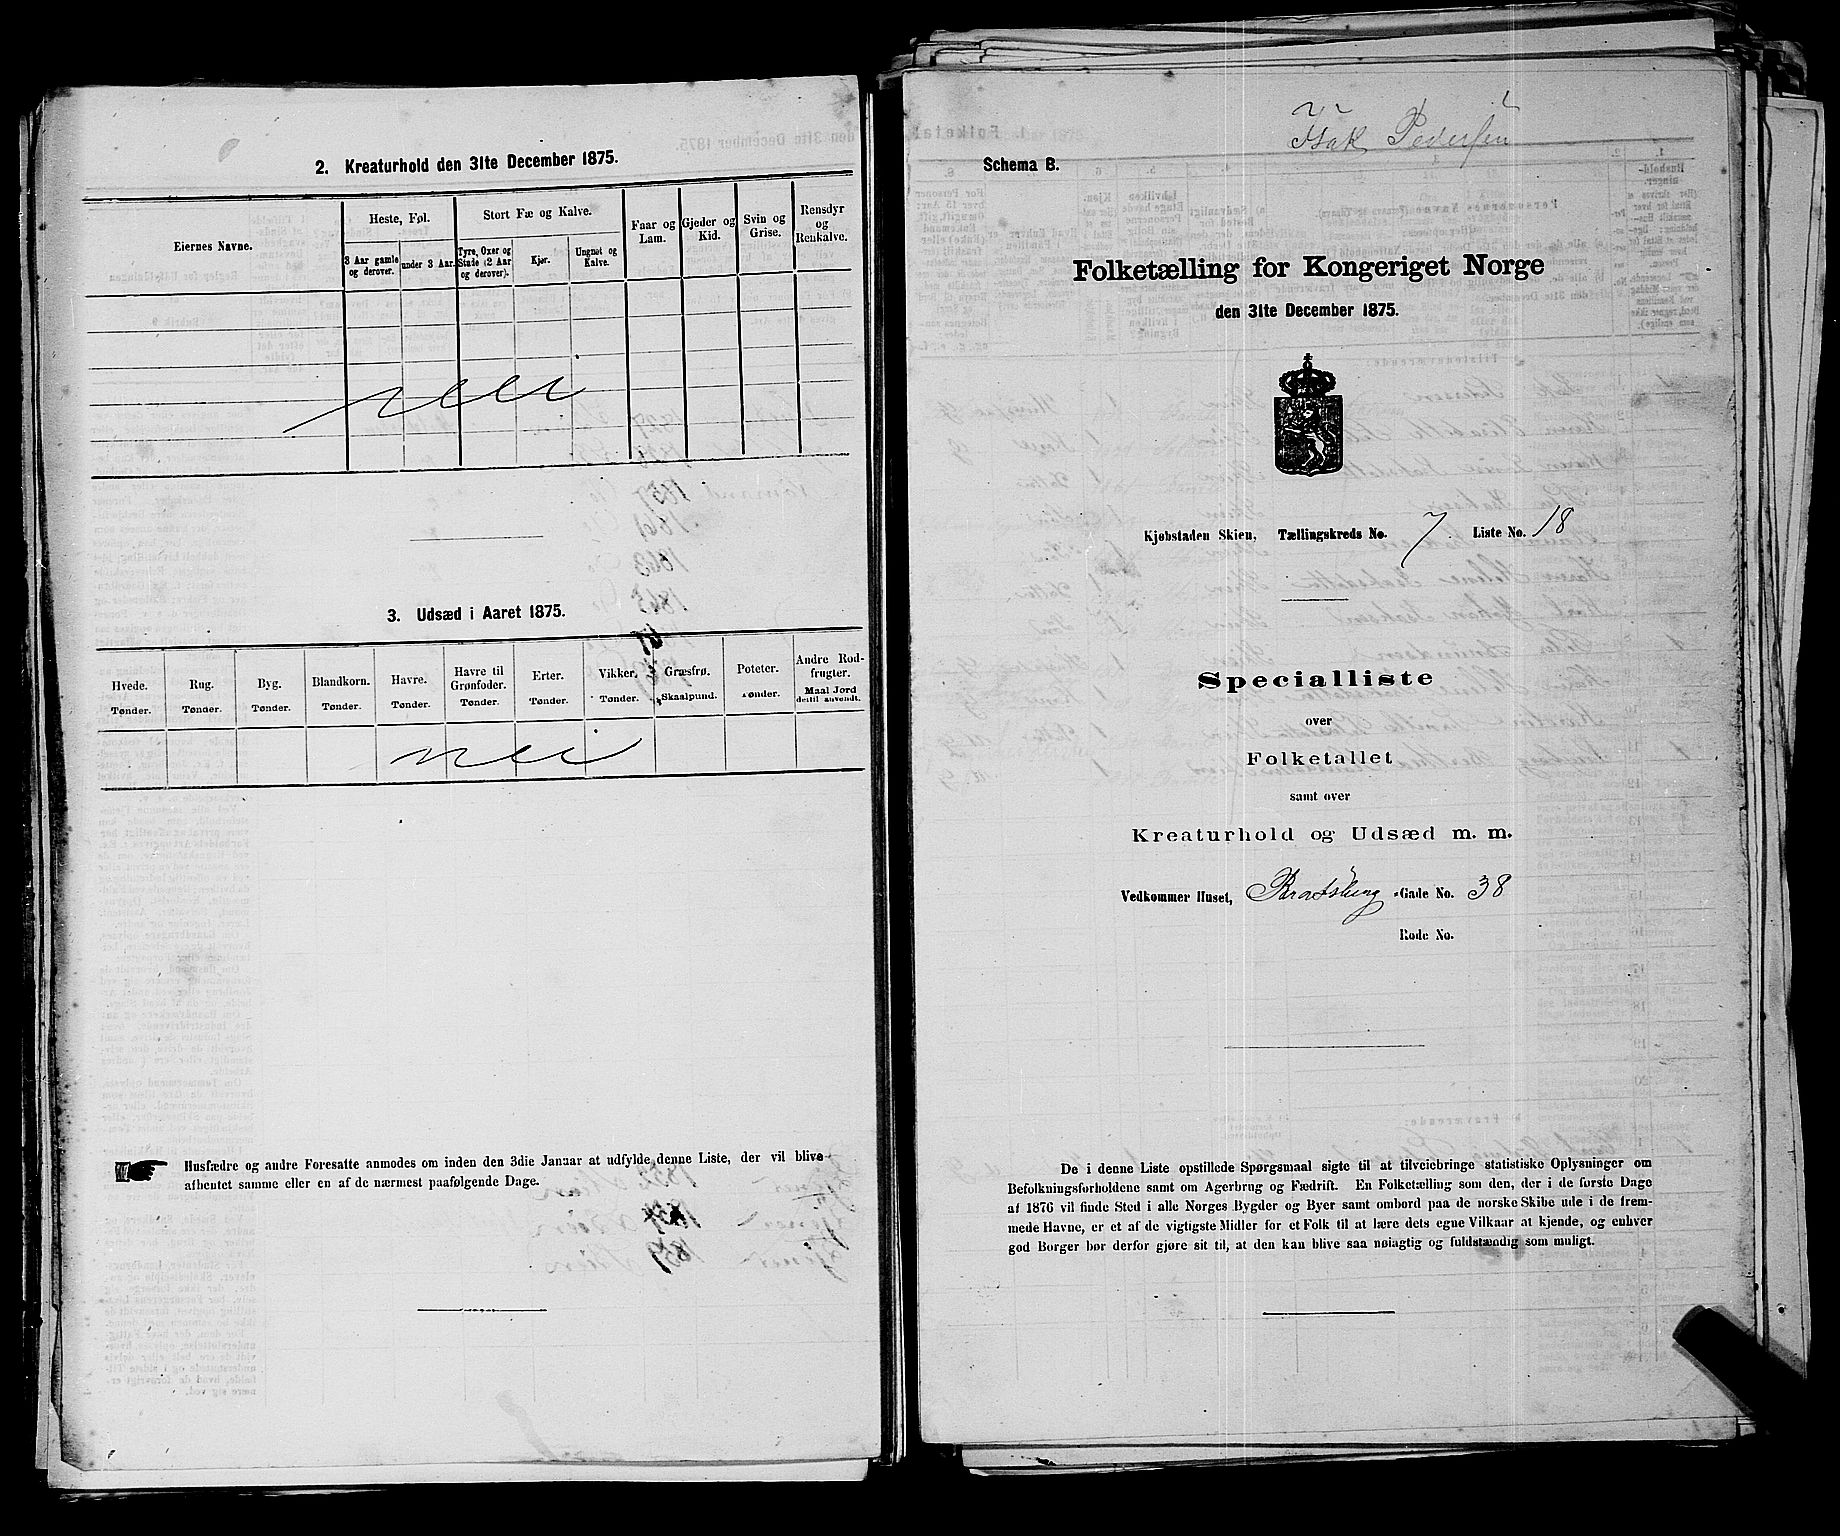 2. Kreaturhold den 31te December 1875.
Eiernes Navne.
Heste, Føl.
Stort Fæ og Kalve.
Faar og Lam.
Gjeder og Kid.
Svin og Grise.
Rensdyr og Renkalve.
3 Aar gamle og derover.
under 3 Aar.
Tyre, Oxer og Stude (2 Aar og derover).
Kjør.
Ungnøt og Kalve.
nei
3. Udsæd i Aaret 1875.
Hvede.
Rug.
Byg.
Blandkorn.
Havre.
Havre til Grønfoder.
Erter.
Vikker.
Græsfrø.
Poteter.
Andre Rodfrugter.
Tønder.
Tønder.
Tønder.
Tønder.
Tønder.
Tønder.
Tønder.
Tønder.
Skaalpund.
Tønder.
Maal Jord dertil anvendt.
nei
Husfædre og andre Foresatte anmodes om inden den 3die Januar at udfylde denne Liste, der vil blive
afhentet samme eller en af de nærmest paafølgende Dage.
Isak Pedersen
Schema B.
Folketælling for Kongeriget Norge
den 31te December 1875.
Kjøbstaden Skien, Tællingskreds No. 7. Liste No. 18
Specialliste
over
Folketallet
samt over
Kreaturhold og Udsæd m. m.
Vedkommer Huset, Bratsberg -Gade No. 38
Rode No.
De i denne Liste opstillede Spørgsmaal sigte til at tilveiebringe statistiske Oplysninger om
Befolkningsforholdene samt om Agerbrug og Fædrift. En Folketælling som den, der i de første Dage
af 1876 vil finde Sted i alle Norges Bygder og Byer samt ombord paa de norske Skibe ude i de frem-
mede Havne, er et af de vigtigste Midler for et Folk til at lære dets egne Vilkaar at kjende, og enhver
god Borger bør derfor gjøre sit til, at den kan blive saa nøiagtig og fuldstændig som muligt.